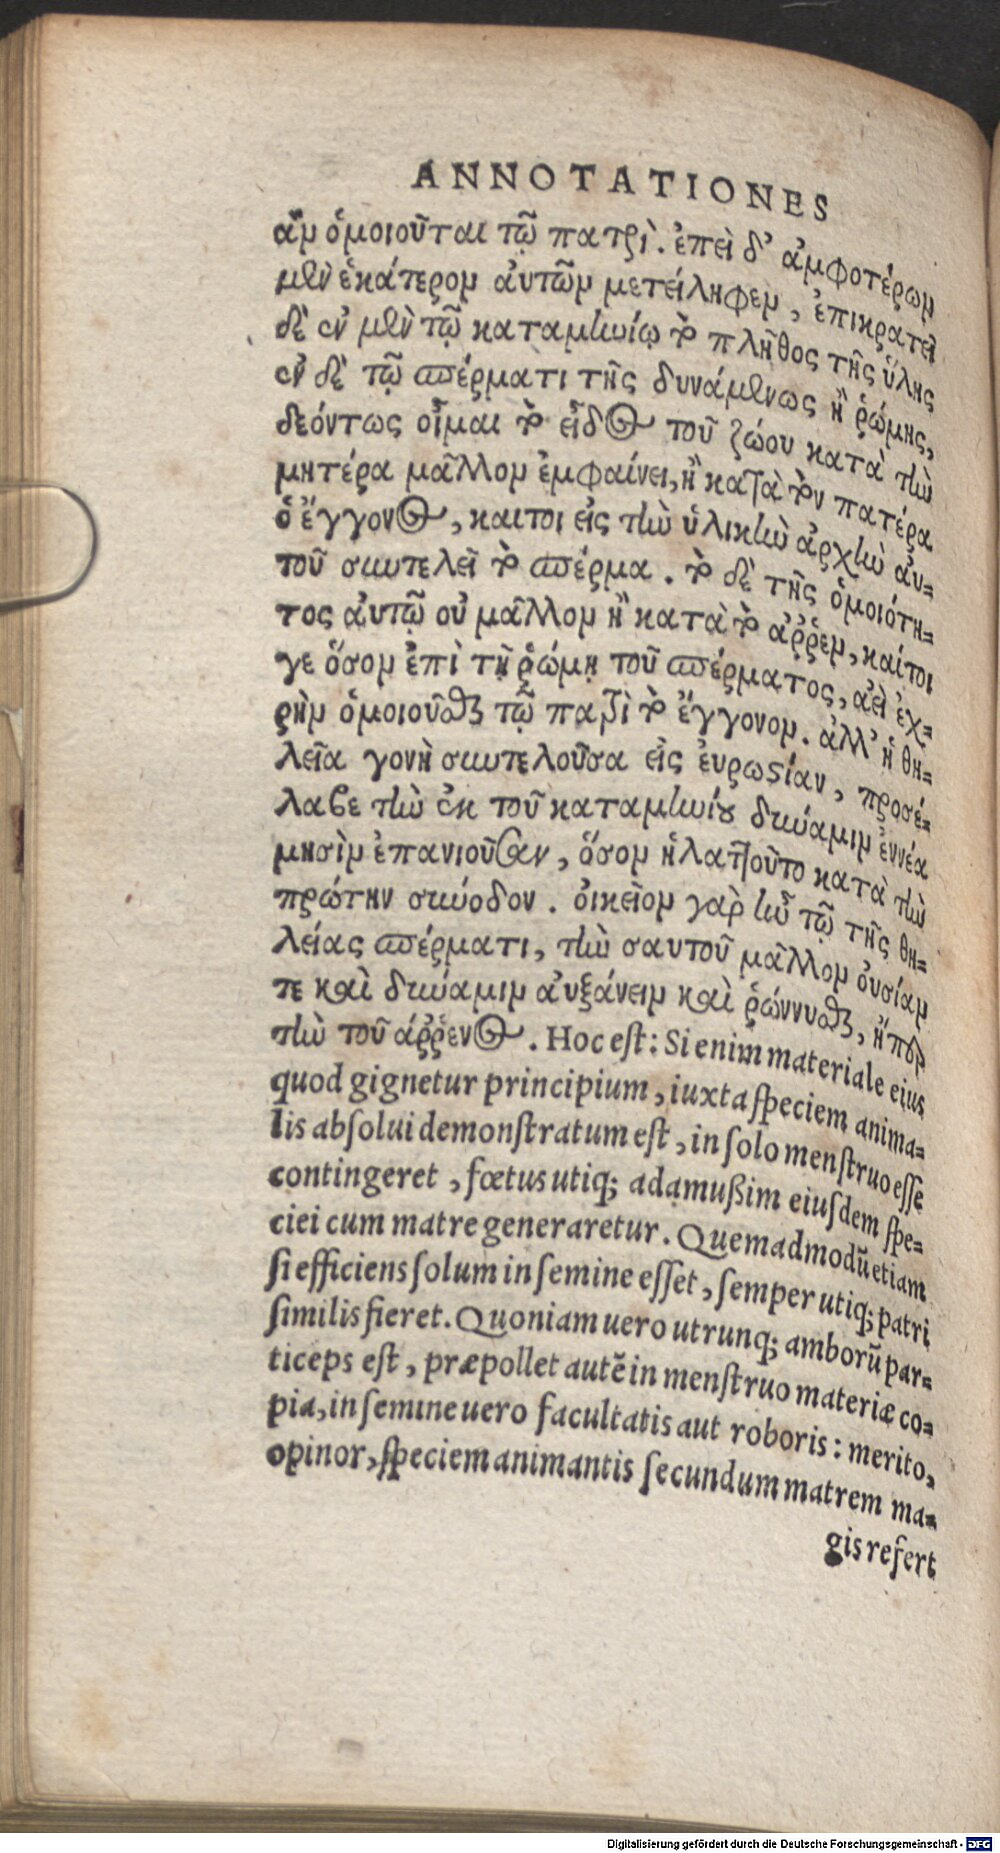 ANNOTATIONES
ἂν ὁμοιοῦται τῷ πατρὶ. ἐπεὶ δ’ ἀμφοτέρων
μὲν ἑκάτερον ἀυτῶν μετείληφεν, ἐπικρατεῖ
δὲ ἐν μὲν τῷ καταμηνίῳ τὸ πλῆθος τῆς ὕλης
ἐν δὲ τῷ σπέρματι τῆς δυνάμενως ἢ ῥώμης,
δεόντως οἶμαι τὸ εἶδος τοῦ ζώου κατὰ τὴν
μητέρα μᾶλλον ἐμφαίνει, ἢ κατὰ τὸν πατέρα
ὁ ἔγγονος, καιτοι εἰς τὴν ὑλικὴν ἀρχὴν ἀυ=
τοῦ συντελεῖ τὸ σπέρμα. τὸ δὲ τῆς ὁμοιότη=
τος ἀυτῷ οὐ μᾶλλον ἢ κατὰ τὸ ἀῤῥεν, καίτοι
γε ὅσον ἐπὶ τῇ ῥώμῃ τοῦ σπέρματος, ἀεὶ ἐχ=
ρὴν ὁμοιοῦσθαι τῷ πατρὶ τὸ ἔγγονον. ἀλλ’ ἡ θη=
λεῖα γονὴ συντελοῦσα εἰς ἐυρωστίαν, προσέ=
λαβε τὴν ἐκ τοῦ καταμηνίου δύναμιν ἐννέα
μησὶν ἐπανιοῦσαν, ὅσον ἠλαττοῦτο κατὰ τὴν
πρώτην σύνοδον. ὀικεῖον γὰρ ἦν τῷ τῆς θη=
λείας σπέρματι, τὴν σαυτοῦ μᾶλλον ὀυσίαν
τε καὶ δύναμιν ἀυξάνειν καὶ ῥώννυσθαι, ἤπερ
τὴν τοῦ ἀῤῥενος. Hoc est: Si enim materiale eius
quod gignetur principium, iuxta speciem anima=
lis absolui demonstratum est, in solo menstruo esse
contingeret, fœtus utiq; adamußim eiusdem spe=
ciei cum matre generaretur. Quemadmodũ etiam
si efficiens solum in semine esset, semper utiq; patri
similis fieret. Quoniam uero utrunq; amborũ par=
ticeps est, præpollet autẽ in menstruo materiæ co=
pia, in semine uero facultatis aut roboris: merito,
opinor, speciem animantis secundum matrem ma=
gis refert
Digitalisierung gefördert durch die Deutsche Forschungsgemeinschaft - DFG